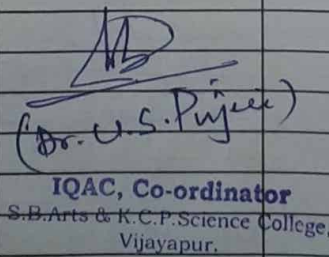 (Dr. U.S. Pujari)
IQAC, Co-ordinator
S.B.Arts & K.C.P.Science College,
Vijayapur.